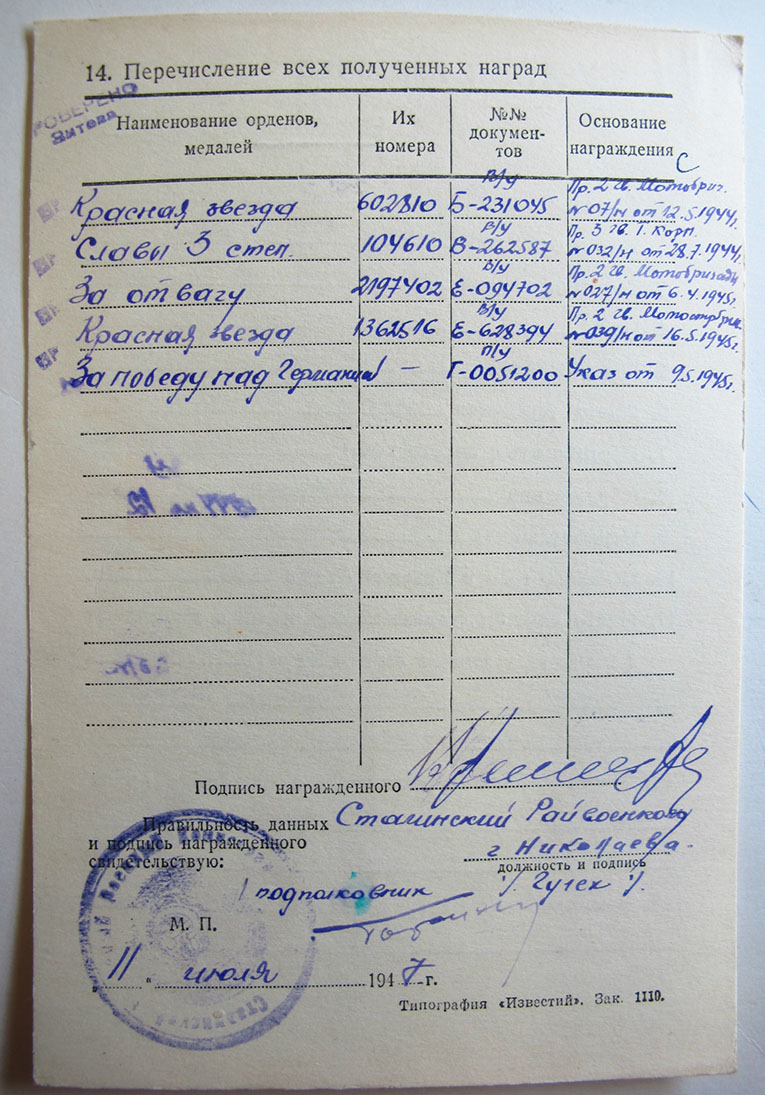 14. Перечисление всех полученных наград
РОВЕРЕНО
Наименование орденов, медалей
Их номера
№№ документов
Основание награждения
Красная звезда 602810 в/у Б-231045 Пр. 2 Гв. Мотобриг. №07/н от 12.5.1944г.
Славы 3 степ. 104610 в/у В-262587 Пр. 3 Гв. 1. Корп. №032/н от 28.7.1944г.
За отвагу 2197402 в/у Е-094702 Пр. 2 Гв. Мотобригады №027/н от 6.4.1945г.
Красная звезда 1362516 в/у Е-628394 Пр. 2 Гв. №039/н от 16.5.1945г.
За победу над Германией — п/у Г-0051200 Указ от 9.5.1945г.
Подпись награжденного
Правильность данных Сталинский Райвоенком
и подпись награжденного г Николаева
свидетельствую:
должность и подпись
подполковник
М. П.
" 11 " июля 1947 г.
Типография «Известий». Зак. 1110.